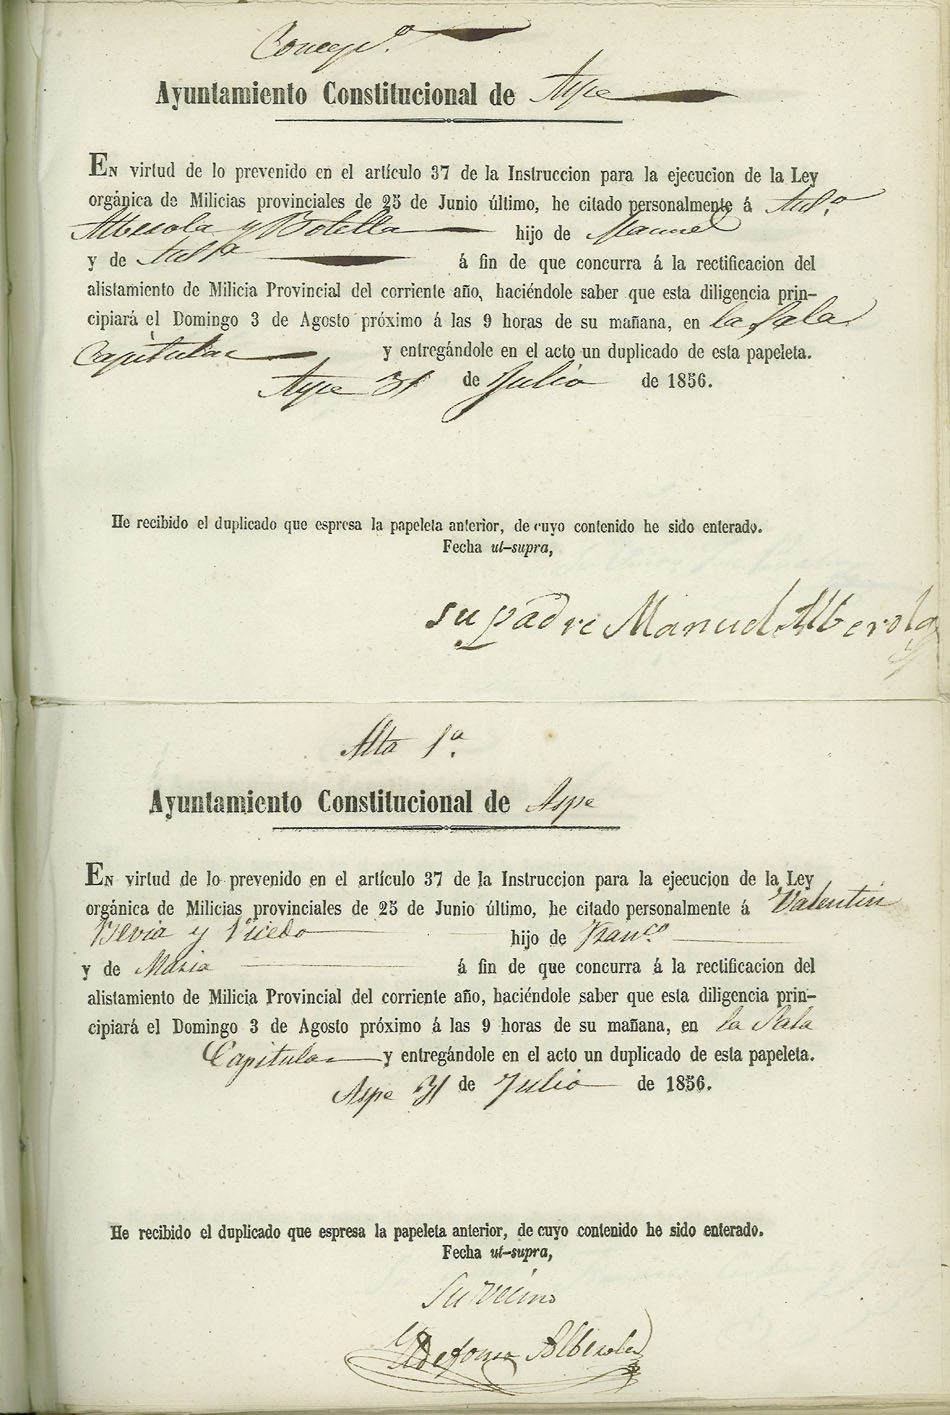 Concep.º
Ayuntamiento Constitucional de Aspe
EN virtud de lo prevenido en el artículo 37 de la Instruccion para la ejecucion de la Ley
orgánica de Milicias provinciales de 25 de Junio último, he citado personalmente á Ant.º
Alberola y Botella hijo de Manuel
y de á fin de que concurra á la rectificacion del
alistamiento de Milicia Provincial del corriente año, haciéndole saber que esta diligencia prin-
cipiará el Domingo 3 de Agosto próximo á las 9 horas de su mañana, en la Sala
Capitular y entregándole en el acto un duplicado de esta papeleta.
Aspe 31 de Julio de 1856.
He recibido el duplicado que espresa la papeleta anterior, de cuyo contenido he sido enterado.
Fecha ut-supra,
su padre Manuel Alberola
Alta 1ª
Ayuntamiento Constitucional de Aspe
EN virtud de lo prevenido en el artículo 37 de la Instruccion para la ejecucion de la Ley
orgánica de Milicias provinciales de 25 de Junio último, he citado personalmente á Valentin
Bevia y Vicedo hijo de Franco.
y de Maria á fin de que concurra á la rectificacion del
alistamiento de Milicia Provincial del corriente año, haciéndole saber que esta diligencia prin-
cipiará el Domingo 3 de Agosto próximo á las 9 horas de su mañana, en la Sala
Capitular y entregándole en el acto un duplicado de esta papeleta.
Aspe 31 de Julio de 1856.
He recibido el duplicado que espresa la papeleta anterior, de cuyo contenido he sido enterado.
Fecha ut-supra,
Su vecino
Yldefonso Alberola